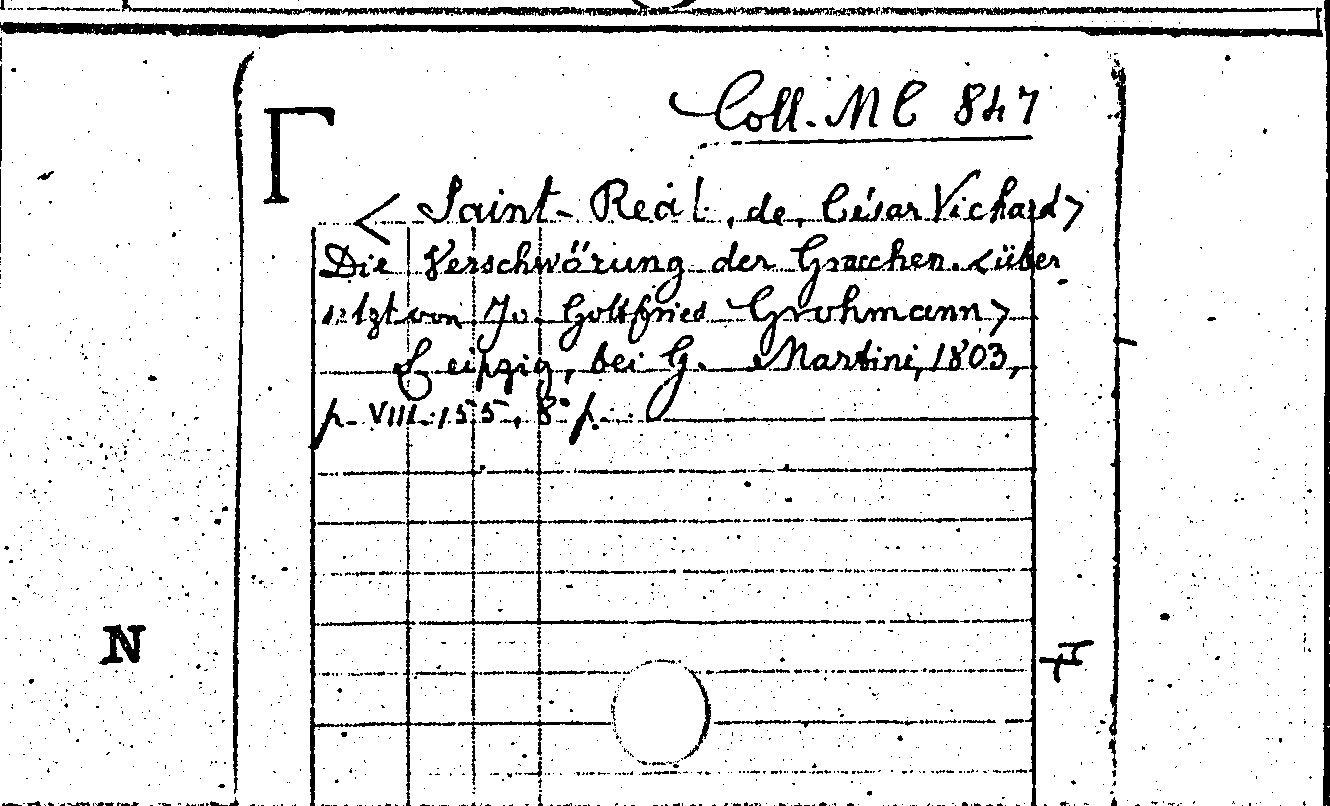 Coll. MC 847
< Saint-Réal, de, César Vichard>
Die Verschwörung der Gracchen. <über
setzt von Jo. Gottfried Grohmann>
Leipzig, bei G. Martini, 1803,
p. VIII. 155, 8° p.
N